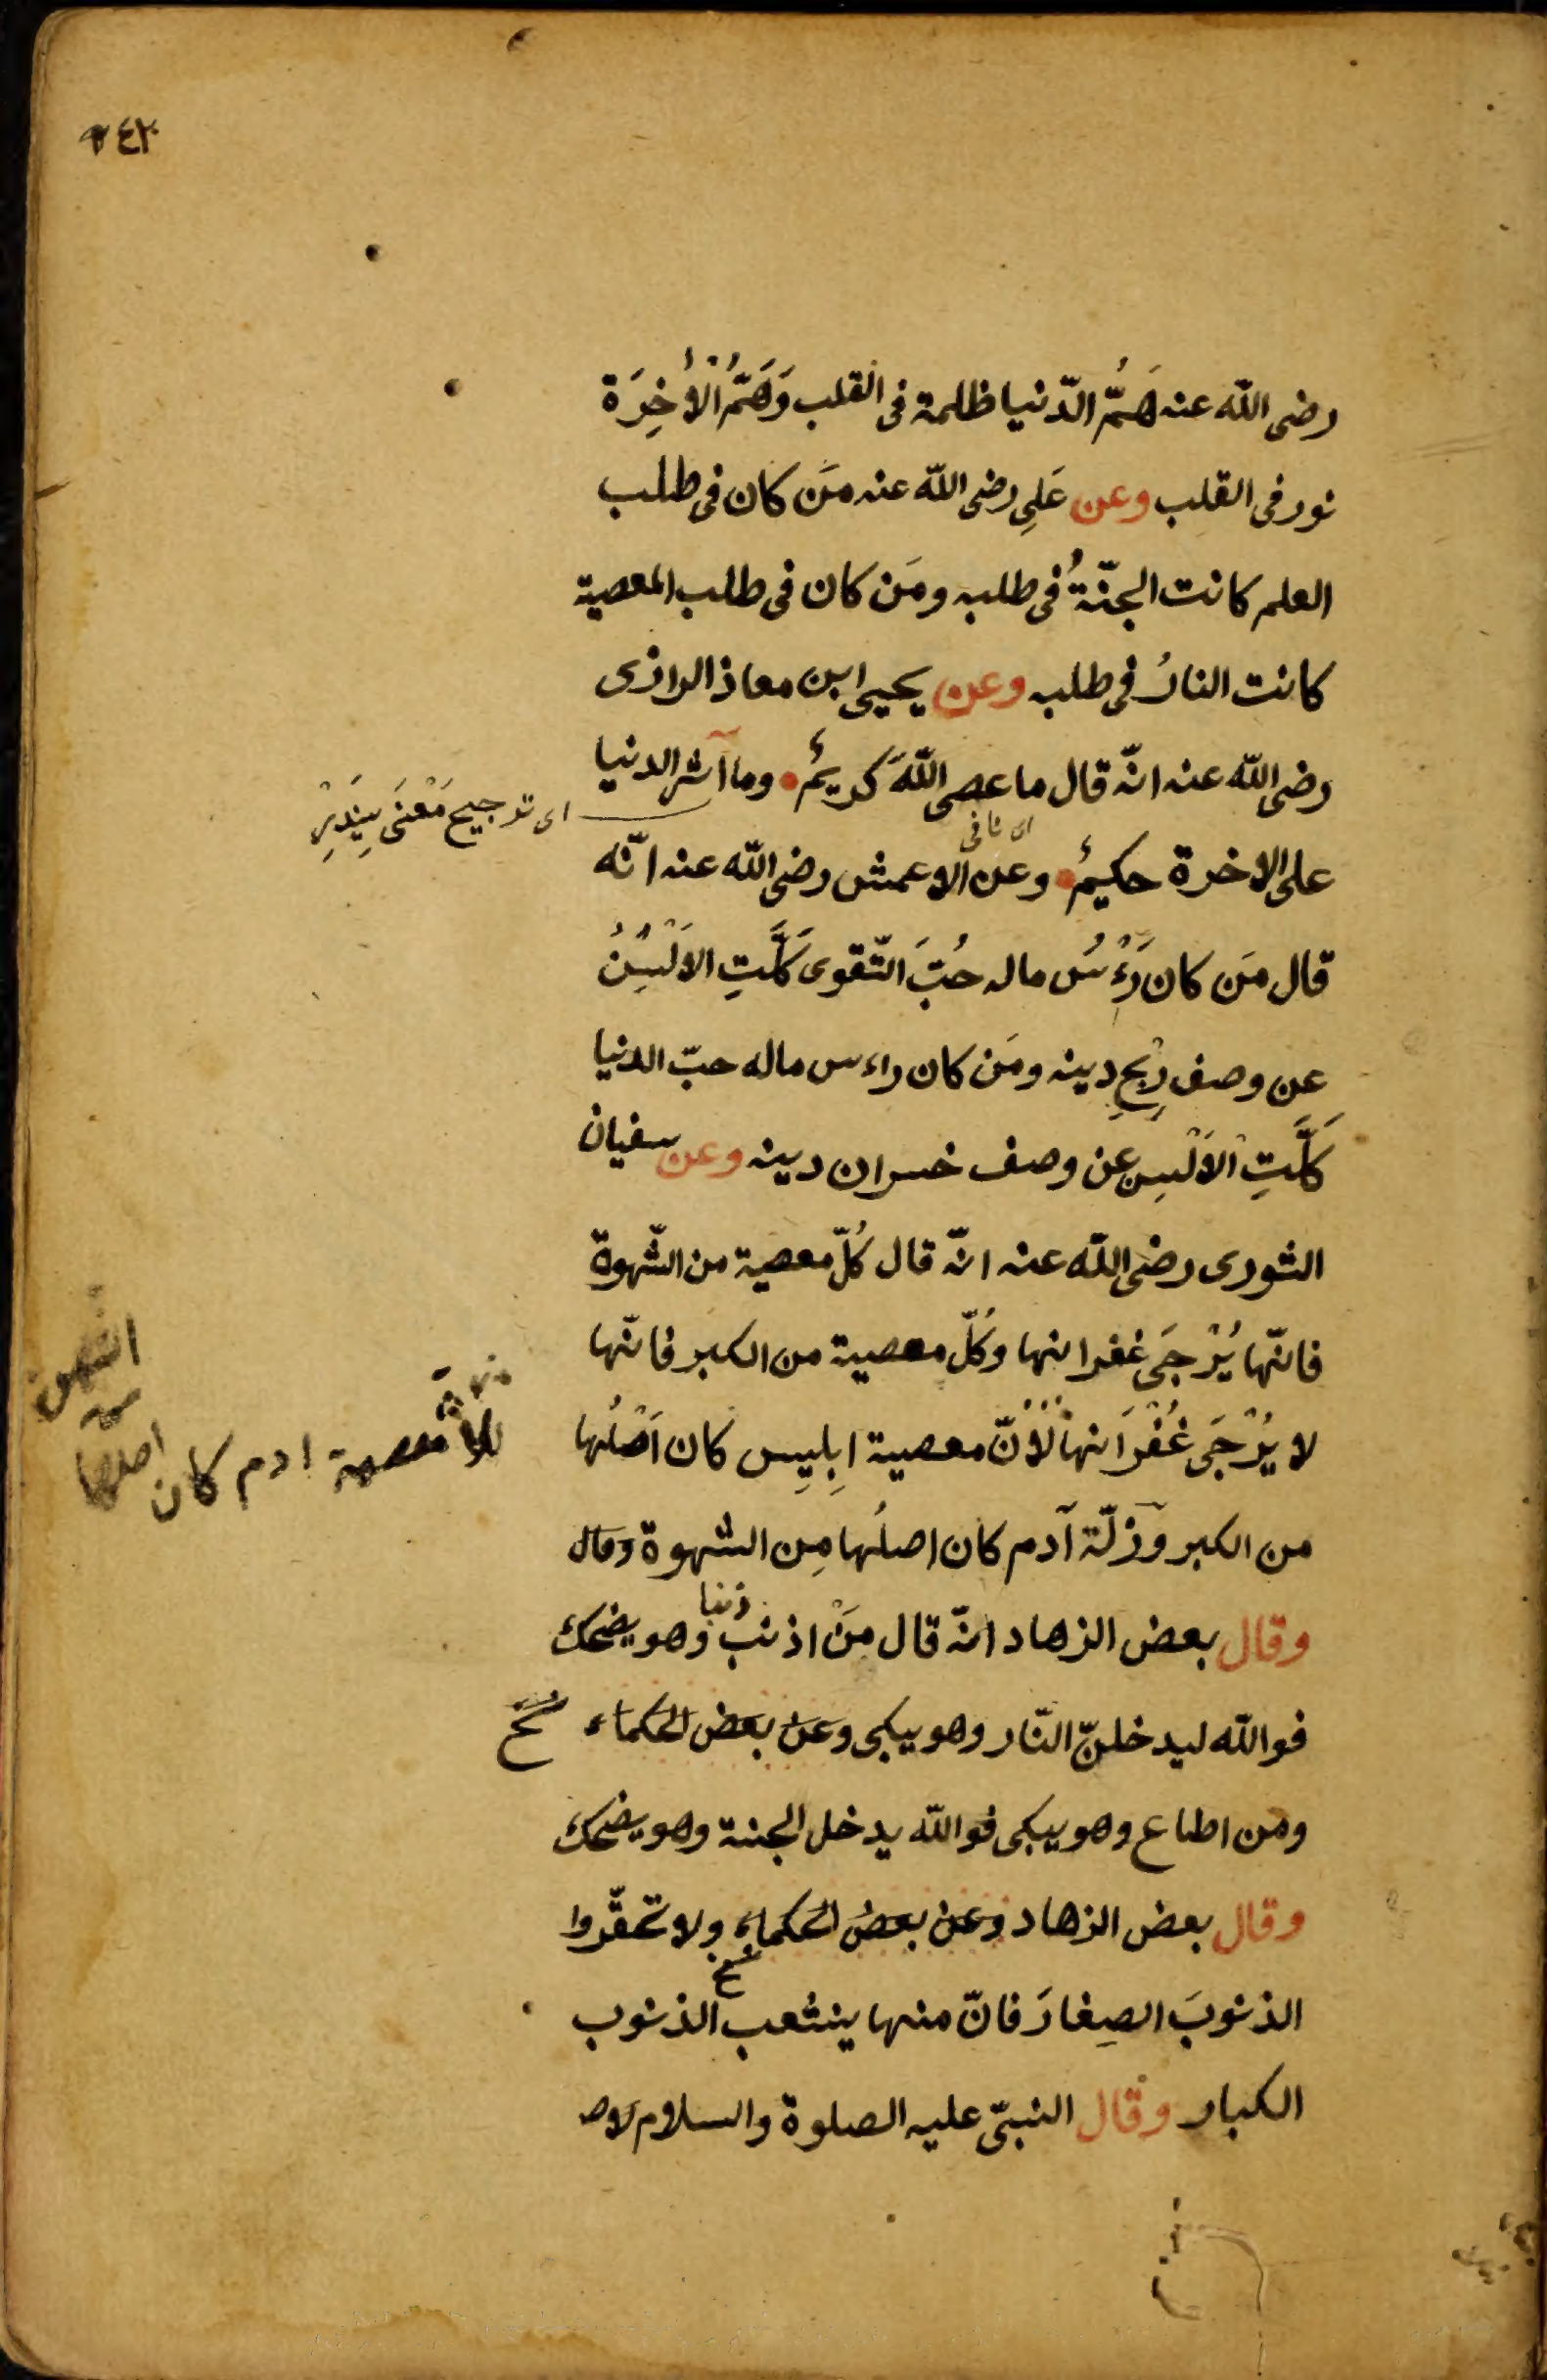 رضى الله عنه هَمُّ الدّنيا ظلمة فى القلب وَهَمُّ الْاٰخِرَة
نور فى القلب وعن عَلِى رضى الله عنه مَن كان فى طلب
العلم كانت الجنّةُ فى طلبه ومَن كان فى طلب المعصية
كانت النارُ فى طلبه وعن يحيى ابن معاذ الرازى
رضى الله عنه انّه قال ما عصى اللّهَ كريمٌ وما آثر الدنيا
اى ترجيح مَعْنَى
على الاخرة حكيمٌ وعن الاعمش رضى الله عنه انّه
قال مَن كان رَءْسُ ماله حُبَّ التّقوى كَلَّتِ الاَلْسُنُ
عن وصف رِبْحِ دينه ومَن كان راءس ماله حبّ الدنيا
كَلَّتِ الْاَلْسِن عن وصف خسران دينه وعن سفيان
الثورى رضى الله عنه انّه قال كُلّ معصية من الشّهوة
فانّها يُرْجَى غفرانها وكُلّ معصية من الكبر فانّها
لا يُرْجَى غُفْرَانها لاَنّ معصية اِبلِيِس كان اَصْلُها
معصية ادم كان اصلها
من الكبر وزلّة آدم كان اصلُها مِن الشهوة وقال
وقال بعض الزهاد انّه قال مَنْ اذنب ذنبا وهو يضحك
فوالله ليدخلنّ النّار وهو يبكى وعن بعض الحكماء
ومن اطاع وهو يبكى فوالله يدخل الجنة وهو يضحك
وقال بعض الزهاد وعن بعض الحكماء ولا تحقّروا
الذنوبَ الصِغارَ فانّ منها ينشعب الذنوب
الكبار وقال النبىّ عليه الصلوة والسلام لا ص